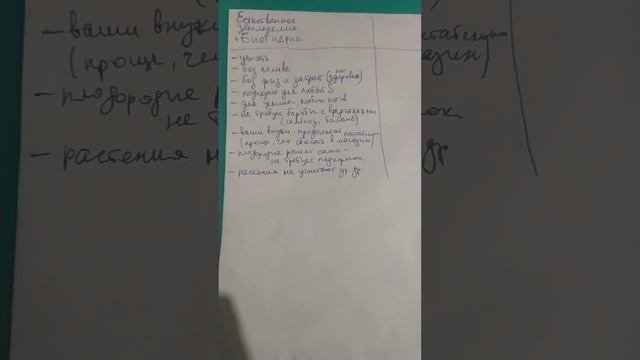 Естественное
земледелие
+ Биогидрис
- убрать
- без полива
- без физ-х затрат (здоровых)
- подходит для любой S
- для целины, любых почв
- не требует борьбы с вредителями
(симбиоз, баланс)
- ваши внуки продолжат
(проще, чем сбегать в магазин)
- плодородие растет само -
не требует подкормок
- растения не угнетают др др